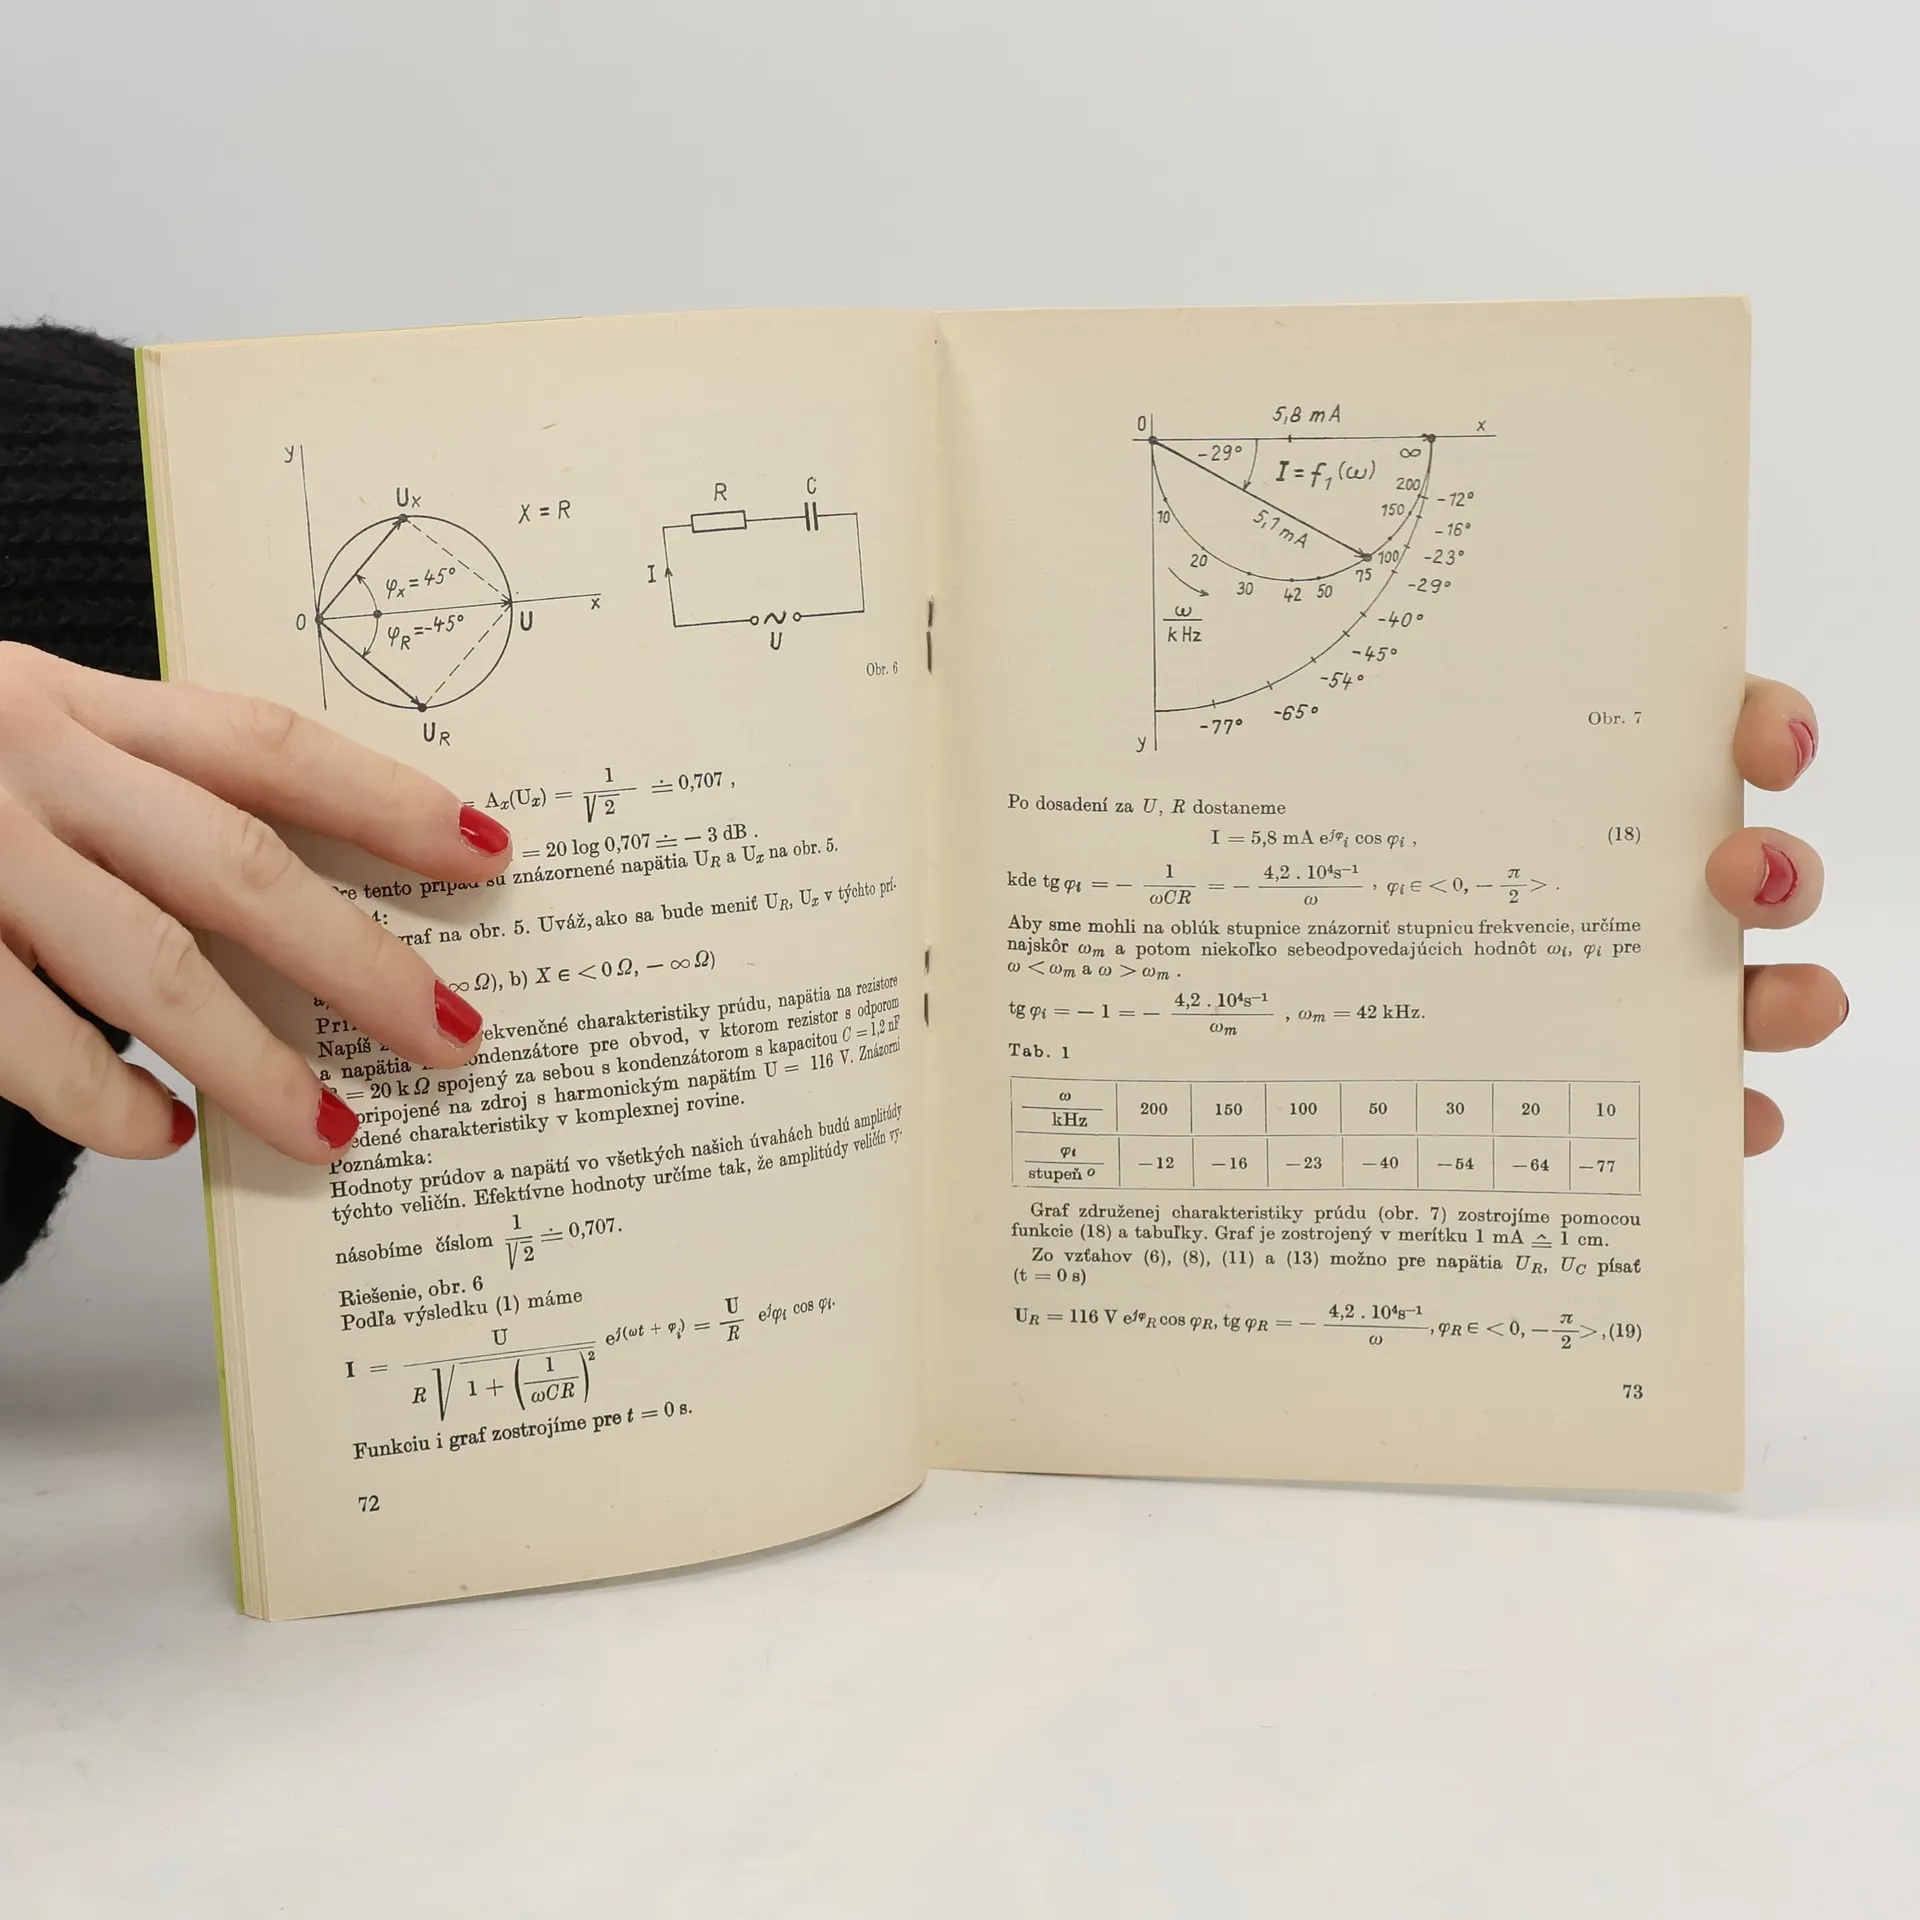 y
Ux
X = R
φx = 45°
φR = -45°
0
U
x
UR
R
C
I
U
Obr. 6
= Ax(Ux) = 1/√2 ≐ 0,707 ,
= 20 log 0,707 ≐ — 3 dB .
tento prípad sú znázornené napätia UR a Ux na obr. 5.
4:
graf na obr. 5. Uváž, ako sa bude meniť UR, Ux v týchto prí-
∞ Ω), b) X ∈ < 0 Ω, — ∞ Ω)
frekvenčné charakteristiky prúdu, napätia na rezistore
Napíš
a napätia kondenzátore pre obvod, v ktorom rezistor s odporom
= 20 k Ω spojený za sebou s kondenzátorom s kapacitou C = 1,2 nF
pripojené na zdroj s harmonickým napätím U = 116 V. Znázorni
edené charakteristiky v komplexnej rovine.
Poznámka:
Hodnoty prúdov a napätí vo všetkých našich úvahách budú amplitúdy
týchto veličín. Efektívne hodnoty určíme tak, že amplitúdy veličín vy-
násobíme číslom 1/√2 ≐ 0,707.
Riešenie, obr. 6
Podľa výsledku (1) máme
I = U / R √(1 + (1/ωCR)²) e^j(ωt + φi) = U/R e^jφi cos φi.
Funkciu i graf zostrojíme pre t = 0 s.
72
0
5,8 mA
x
-29°
I = f₁(ω)
5,1 mA
∞
200
150
100
75
50
42
30
20
10
ω
kHz
-12°
-16°
-23°
-29°
-40°
-45°
-54°
-65°
-77°
y
Obr. 7
Po dosadení za U, R dostaneme
I = 5,8 mA e^jφi cos φi , (18)
kde tg φi = — 1/ωCR = — 4,2 . 10⁴s⁻¹/ω , φi ∈ < 0, — π/2 > .
Aby sme mohli na oblúk stupnice znázorniť stupnicu frekvencie, určíme
najskôr ωm a potom niekoľko sebeodpovedajúcich hodnôt ωi, φi pre
ω < ωm a ω > ωm .
tg φi = — 1 = — 4,2 . 10⁴s⁻¹/ωm , ωm = 42 kHz.
Tab. 1
ω/kHz 200 150 100 50 30 20 10
φi/stupeň ° —12 —16 —23 —40 —54 —64 —77
Graf združenej charakteristiky prúdu (obr. 7) zostrojíme pomocou
funkcie (18) a tabuľky. Graf je zostrojený v merítku 1 mA ≙ 1 cm.
Zo vzťahov (6), (8), (11) a (13) možno pre napätia UR, UC písať
(t = 0 s)
UR = 116 V e^jφR cos φR, tg φR = — 4,2 . 10⁴s⁻¹/ω , φR ∈ < 0, — π/2 >, (19)
73